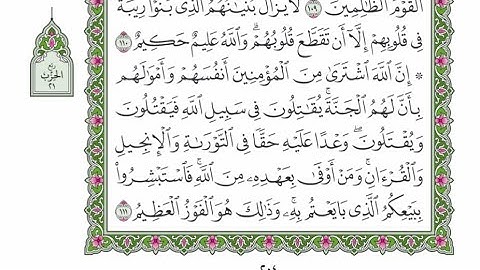 ٱلۡقَوۡمَ ٱلظَّٰلِمِينَ ١٠٩ لَا يَزَالُ بُنۡيَٰنُهُمُ ٱلَّذِي بَنَوۡاْ رِيبَةٗ
فِي قُلُوبِهِمۡ إِلَّآ أَن تَقَطَّعَ قُلُوبُهُمۡۗ وَٱللَّهُ عَلِيمٌ حَكِيمٌ ١١٠
۞ إِنَّ ٱللَّهَ ٱشۡتَرَىٰ مِنَ ٱلۡمُؤۡمِنِينَ أَنفُسَهُمۡ وَأَمۡوَٰلَهُم
بِأَنَّ لَهُمُ ٱلۡجَنَّةَۚ يُقَٰتِلُونَ فِي سَبِيلِ ٱللَّهِ فَيَقۡتُلُونَ
وَيُقۡتَلُونَۖ وَعۡدًا عَلَيۡهِ حَقّٗا فِي ٱلتَّوۡرَىٰةِ وَٱلۡإِنجِيلِ
وَٱلۡقُرۡءَانِۚ وَمَنۡ أَوۡفَىٰ بِعَهۡدِهِۦ مِنَ ٱللَّهِۚ فَٱسۡتَبۡشِرُواْ
بِبَيۡعِكُمُ ٱلَّذِي بَايَعۡتُم بِهِۦۚ وَذَٰلِكَ هُوَ ٱلۡفَوۡزُ ٱلۡعَظِيمُ ١١١
ربع
الحزب
٢١
٢٠٤